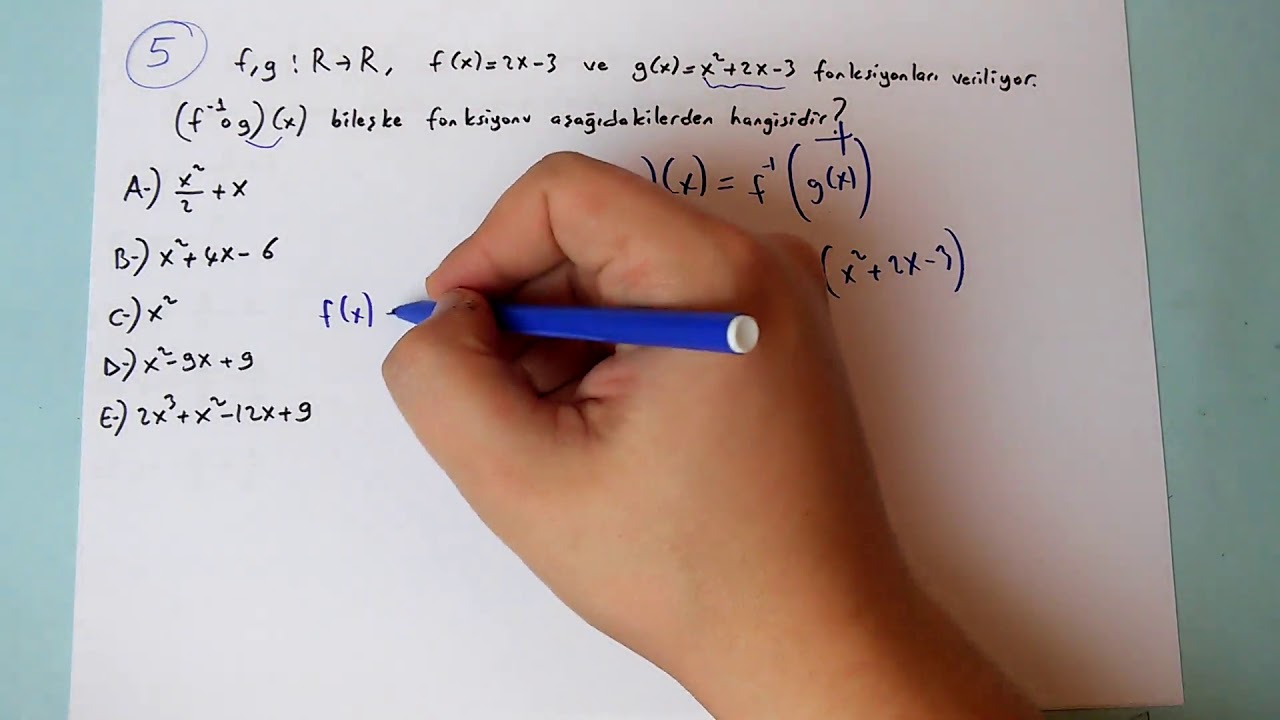 5 f,g : R→R, f(x)=2x-3 ve g(x)=x²+2x-3 fonksiyonları veriliyor.
(f⁻¹og)(x) bileşke fonksiyonu aşağıdakilerden hangisidir?
A-) x²/2 + x
B-) x²+4x-6
C-) x²
D-) x²-9x+9
E-) 2x³+x²-12x+9
)(x) = f⁻¹(g(x))
(x²+2x-3)
f(x)